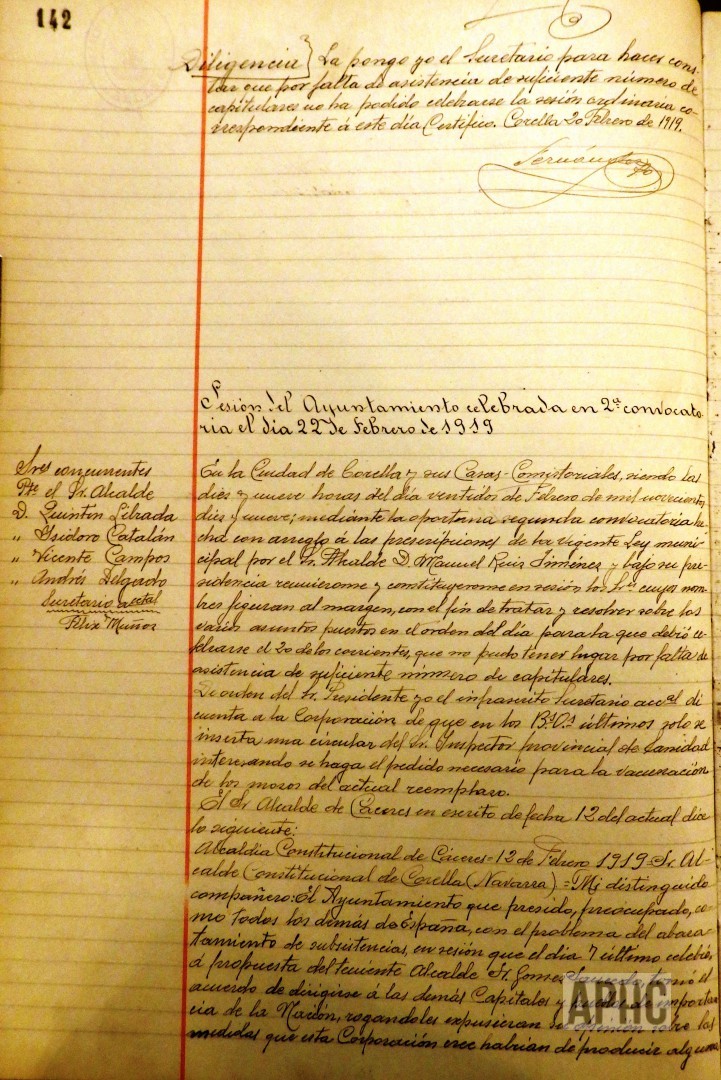 142
Diligencia} La pongo yo el Secretario para hacer cons-
tar que por falta de asistencia de suficiente número de
capitulares no ha podido celebrarse la sesión ordinaria co-
rrespondiente á este día Certifico. Corella 20 Febrero de 1919.
Sesión del Ayuntamiento celebrada en 2ª convocato-
ria el día 22 de Febrero de 1919
Sres concurrentes
Pte el Sr. Alcalde
D. Quintín Librada
" Isidoro Catalán
" Vicente Campos
" Andrés Delgado
Secretario acctal
Félix Muñoz
En la Ciudad de Corella y sus Casas-Comistoriales, siendo las
diez y nueve horas del día ventidos de Febrero de mil novecientos
diez y nueve; mediante la oportuna segunda convocatoria he-
cha con arreglo á las prescripciones de la vigente Ley muni-
cipal por el Sr. Alcalde D. Manuel Ruiz Jiménez y bajo su pre-
sidencia reunierome y constituyerome en sesión los Sres cuyos nom-
bres figuran al margen, con el fin de tratar y resolver sobre los
varios asuntos puestos en el orden del día para la que debió ce-
lebrarse el 20 de los corrientes, que no pudo tener lugar por falta de
asistencia de suficiente número de capitulares.
De orden del Sr. Presidente yo el infrascrito Secretario accal di
cuenta a la Corporación de que en los BB.OO. últimos solo se
inserta una circular del Sr. Inspector provincial de Sanidad
interesando se haga el pedido necesario para la vacunación
de los mozos del actual reemplazo.
El Sr Alcalde de Cáceres en escrito de fecha 12 del actual dice
lo siguiente:
Alcaldía Constitucional de Cáceres=12 de Febrero 1919=Sr. Al-
calde Constitucional de Corella (Navarra)=Mi distinguido
compañero: El Ayuntamiento que presido, preocupado, co-
mo todos los demás de España, con el problema del abara-
tamiento de subsistencias, en sesión que el día 7 último celebró,
á propuesta del teniente Alcalde Sr Gomez tomó el
acuerdo de dirigirse á las demás Capitales y de importan
cia de la Nación, rogandoles expusieran su opinión sobre las
medidas que esta Corporación cree habrían de producir alguna
APHC